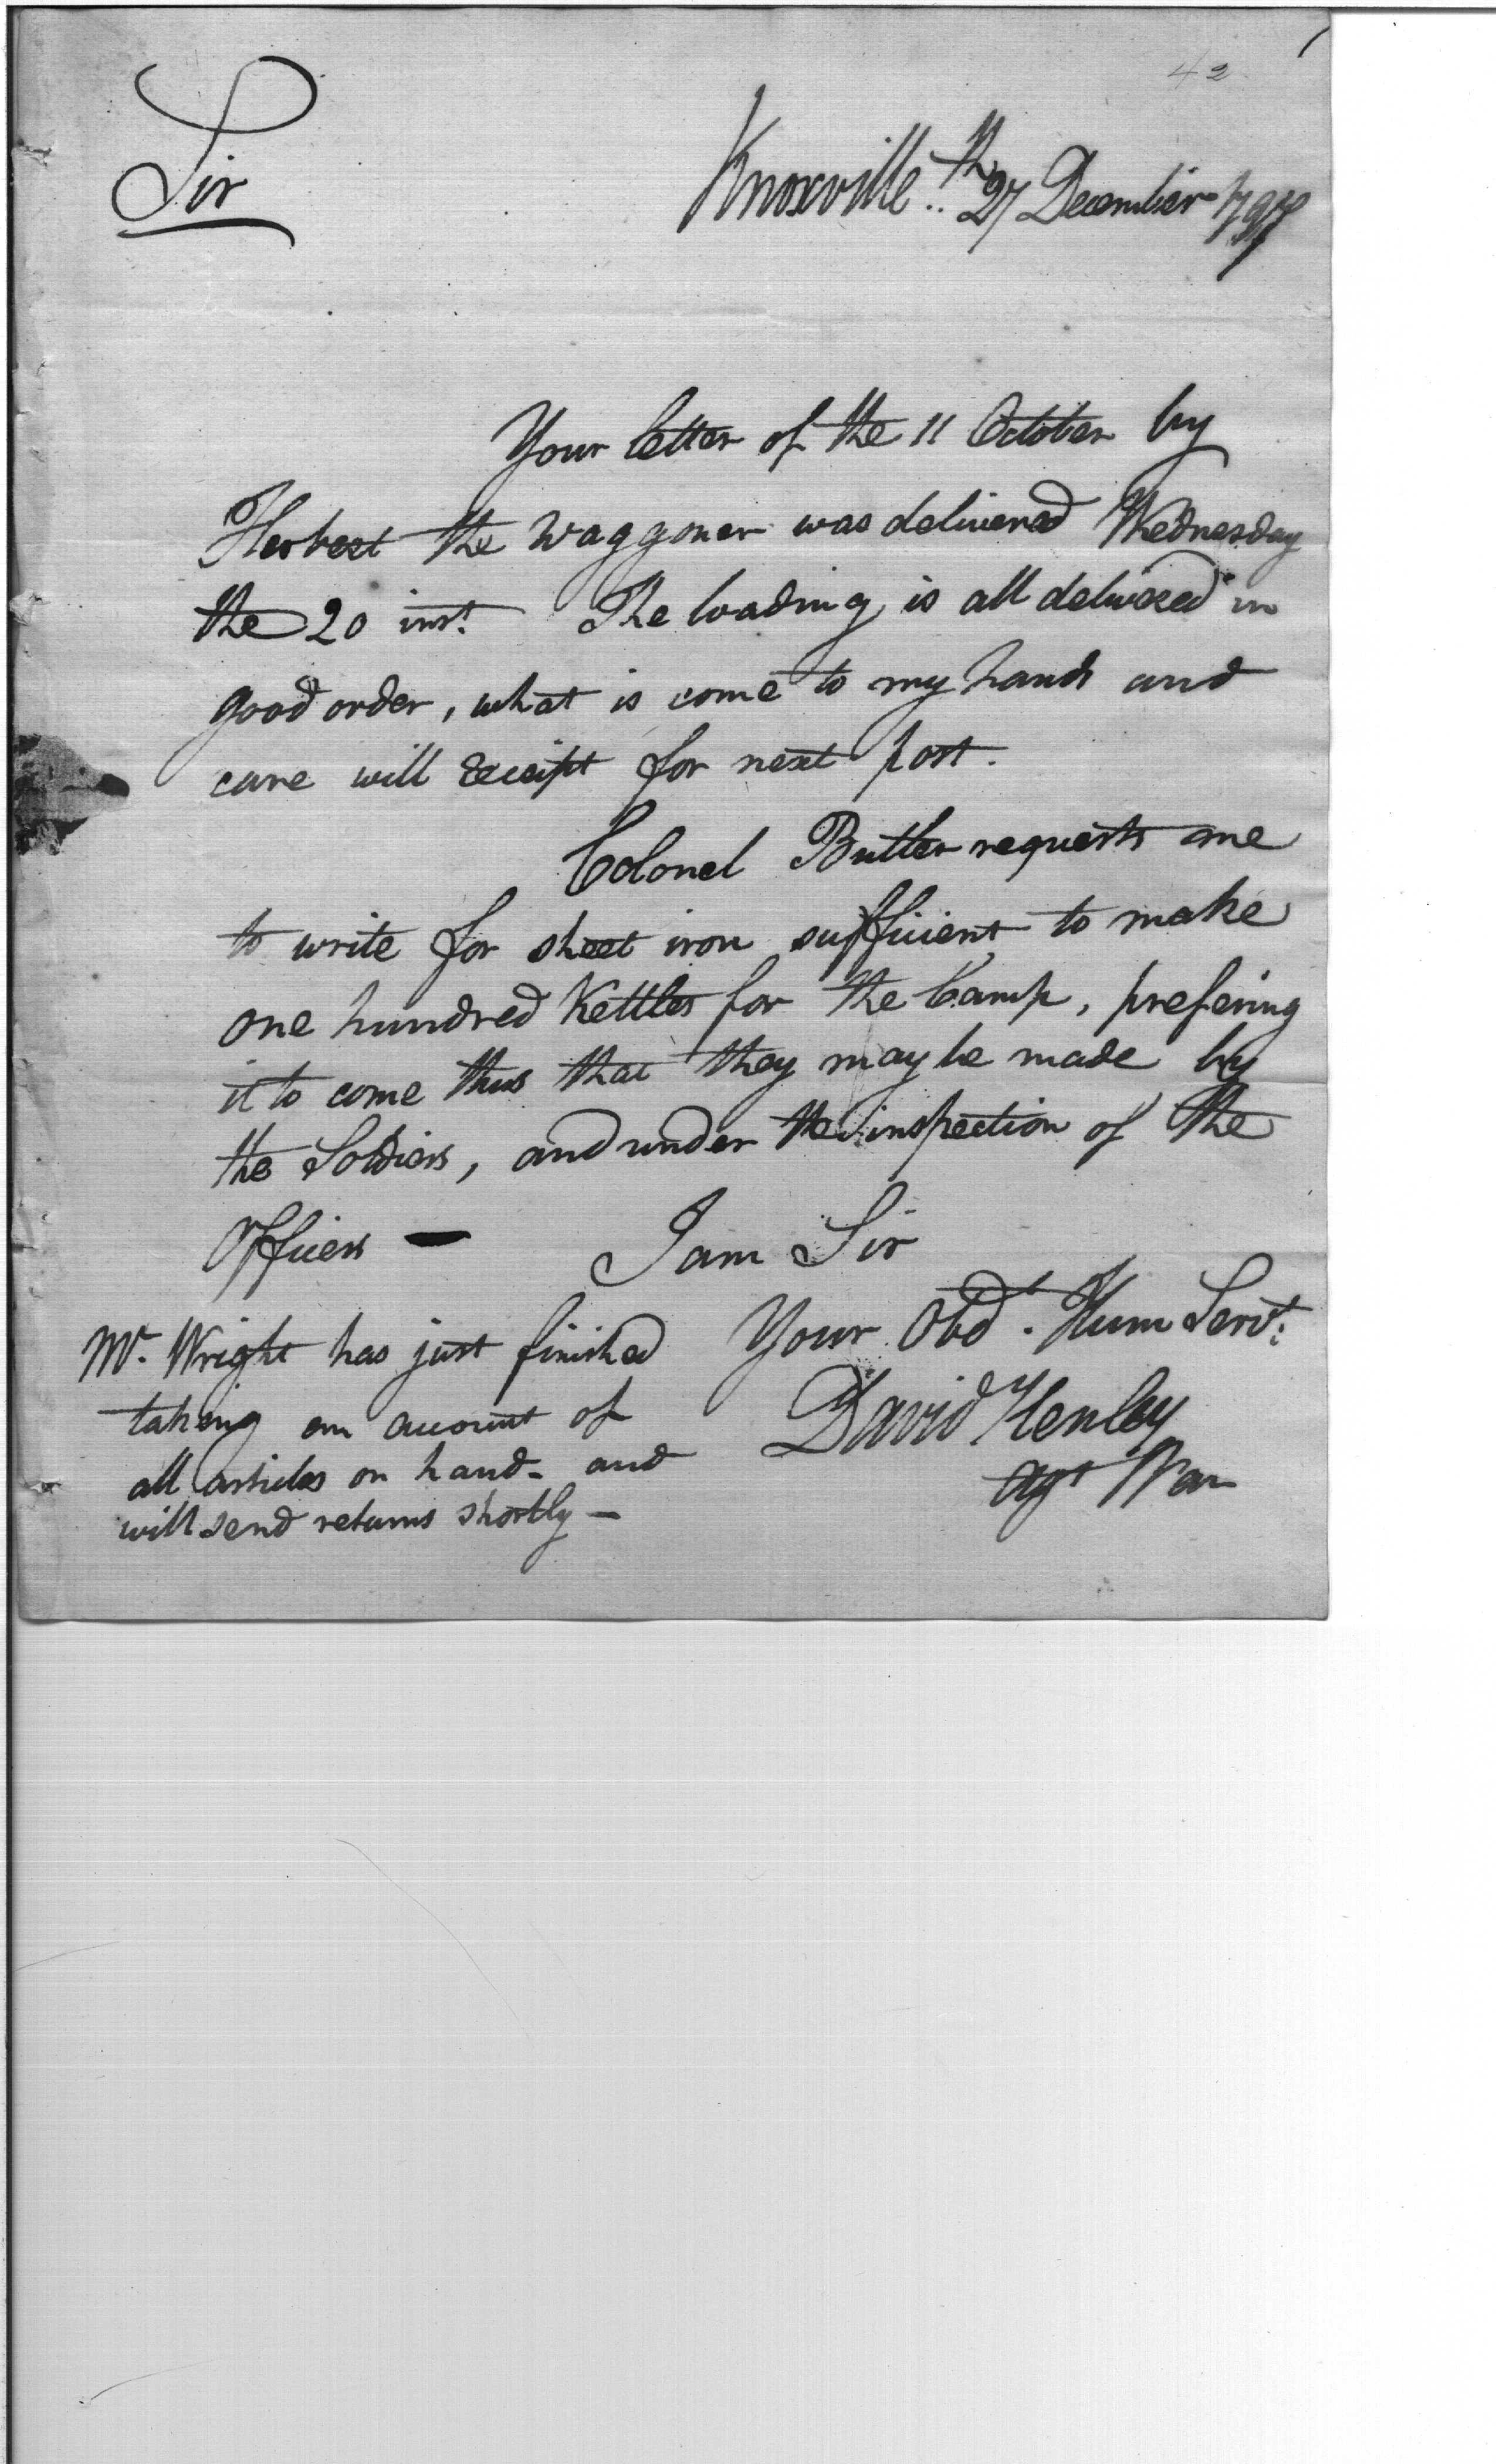 42
Sir
Knoxville th 27 December 1797
Your letter of the 11 October by
Herbert the Waggoner was delivered Wednesday
the 20 inst. The loading is all delivered in
good order, what is come to my hands and
care will receipt for next post.
Colonel Butler requests me
to write for sheet iron sufficient to make
one hundred Kettles for the Camp, prefering
it to come thus that they may be made by
the Soldiers, and under the inspection of the
Officers —
I am Sir
Your Obdt. Hum Servt.
David Henley
agt War
Mr. Wright has just finished
taking an account of
all articles on hand - and
will send returns shortly —